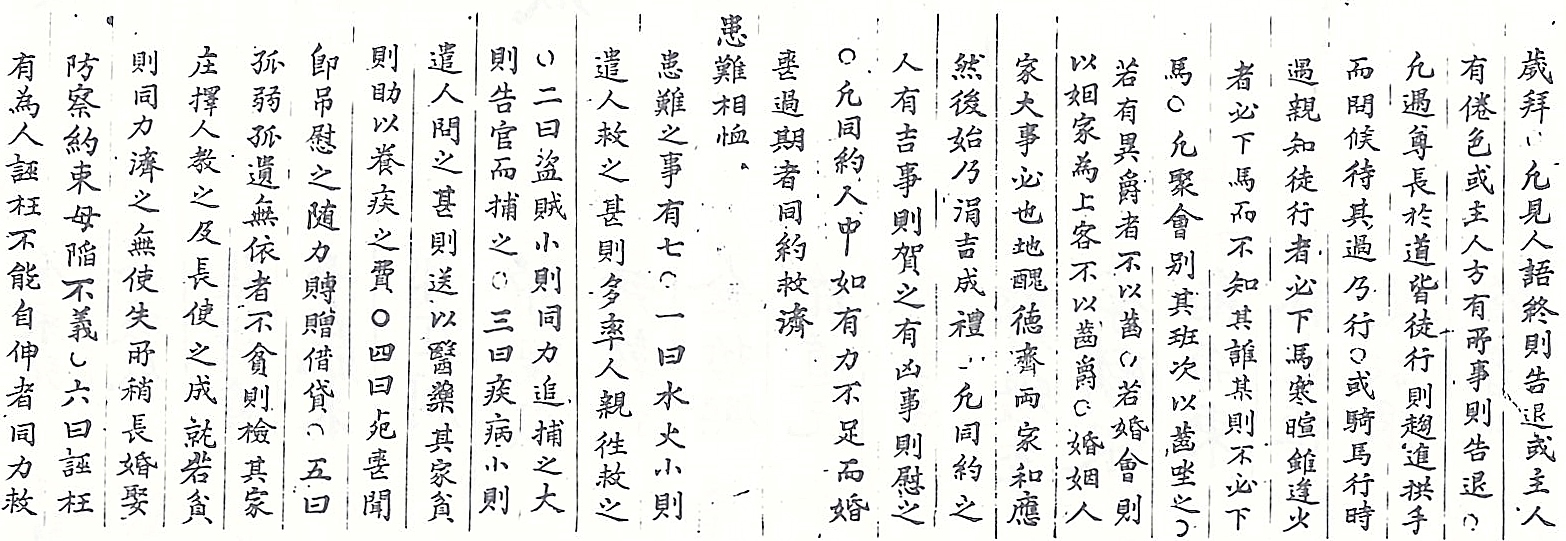 歲拜○凢見人語終則告退或主人
有倦色或主人方有所事則告退○
凢遇尊長於道皆徒行則趨進拱手
而問候待其過乃行○或騎馬行時
遇親知徒行者必下馮寒暄雖逢火
者必下馬而不知其誰某則不必下
馬○凢聚會别其班次以齒坐之○
若有異爵者不以齒○若婚會則
以姻家為上客不以齒爵○婚姻人
家大事必也地醜德齊兩家和應
然後始乃涓吉成禮○凢同約之
人有吉事則賀之有凶事則慰之
○凢同約人中如有力不足而婚
喪過期者同約救濟
患難相恤
患難之事有七○一曰水火小則
遣人救之甚則多率人親徃救之
○二曰盜賊小則同力追捕之大
則告官而捕之○三曰疾病小則
遣人問之甚則送以醫藥其家貧
則助以養疾之費○四曰死喪聞
卽吊慰之随力賻贈借貸○五曰
孤弱孤遺無依者不貪則檢其家
庄擇人教之及長使之成就若貧
則同力濟之無使失所稍長婚娶
防察約束毋陷不義○六曰誣枉
有為人誣枉不能自伸者同力救